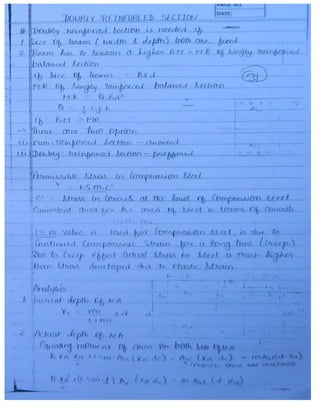 PAGE NO.
DATE:
DOUBLY REINFORCED SECTION
# Doubly reinforced section is needed if
1. Size of beam (width & depth) both are fixed
2. Beam has to sustain a higher BM > MR of singly reinforced
balanced section
if size of beam = B×d
MR of singly reinforced balanced section
MR = Q.Bd²
Q = 1 C j k
if BM > MR
→ There are two option
(i) over reinforced section - avoided
(ii) Doubly reinforced section - preferred
Permissible stress in compression steel
= 1.5 m.c'
c' = stress in concrete at the level of compression steel
Equivalent area for Asc area of steel in terms of concrete
1.5 m value is used for compression steel, is due to
continued compressive strain for a long time (creep)
Due to creep effect actual stress in steel is much higher
than stress developed due to elastic strain
Analysis
1. Critical depth of NA
xc = mc × d
t + mc
2. Actual depth of NA
Equating moment of area on both side of NA
B xa xa + 1.5m Asc (xa - dc) - Asc (xa - dc) = m Ast (d - xa)
2
B xa² + (1.5m - 1) Asc (xa - dc) = m Ast (d - xa)
2